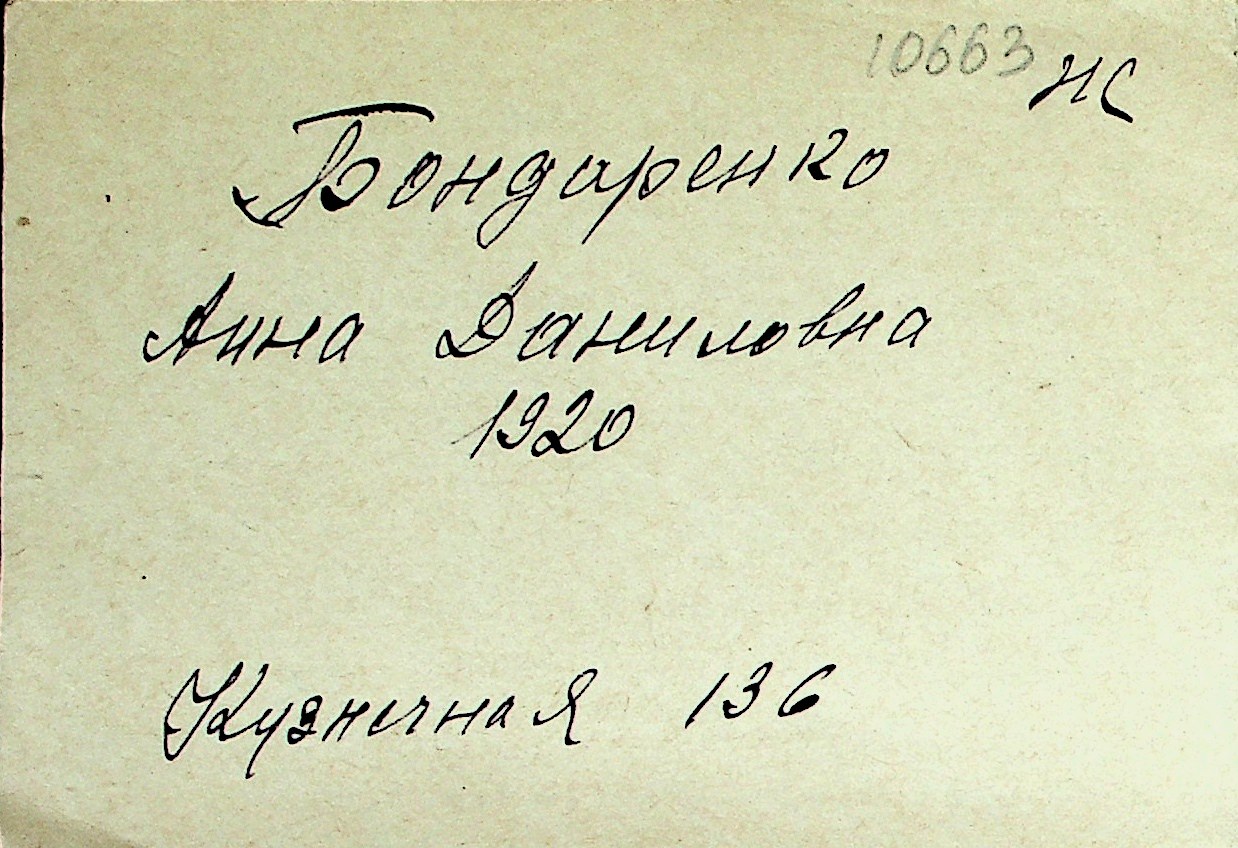 10663 НС
Бондаренко
Анна Даниловна
1920
Кузнечная 136